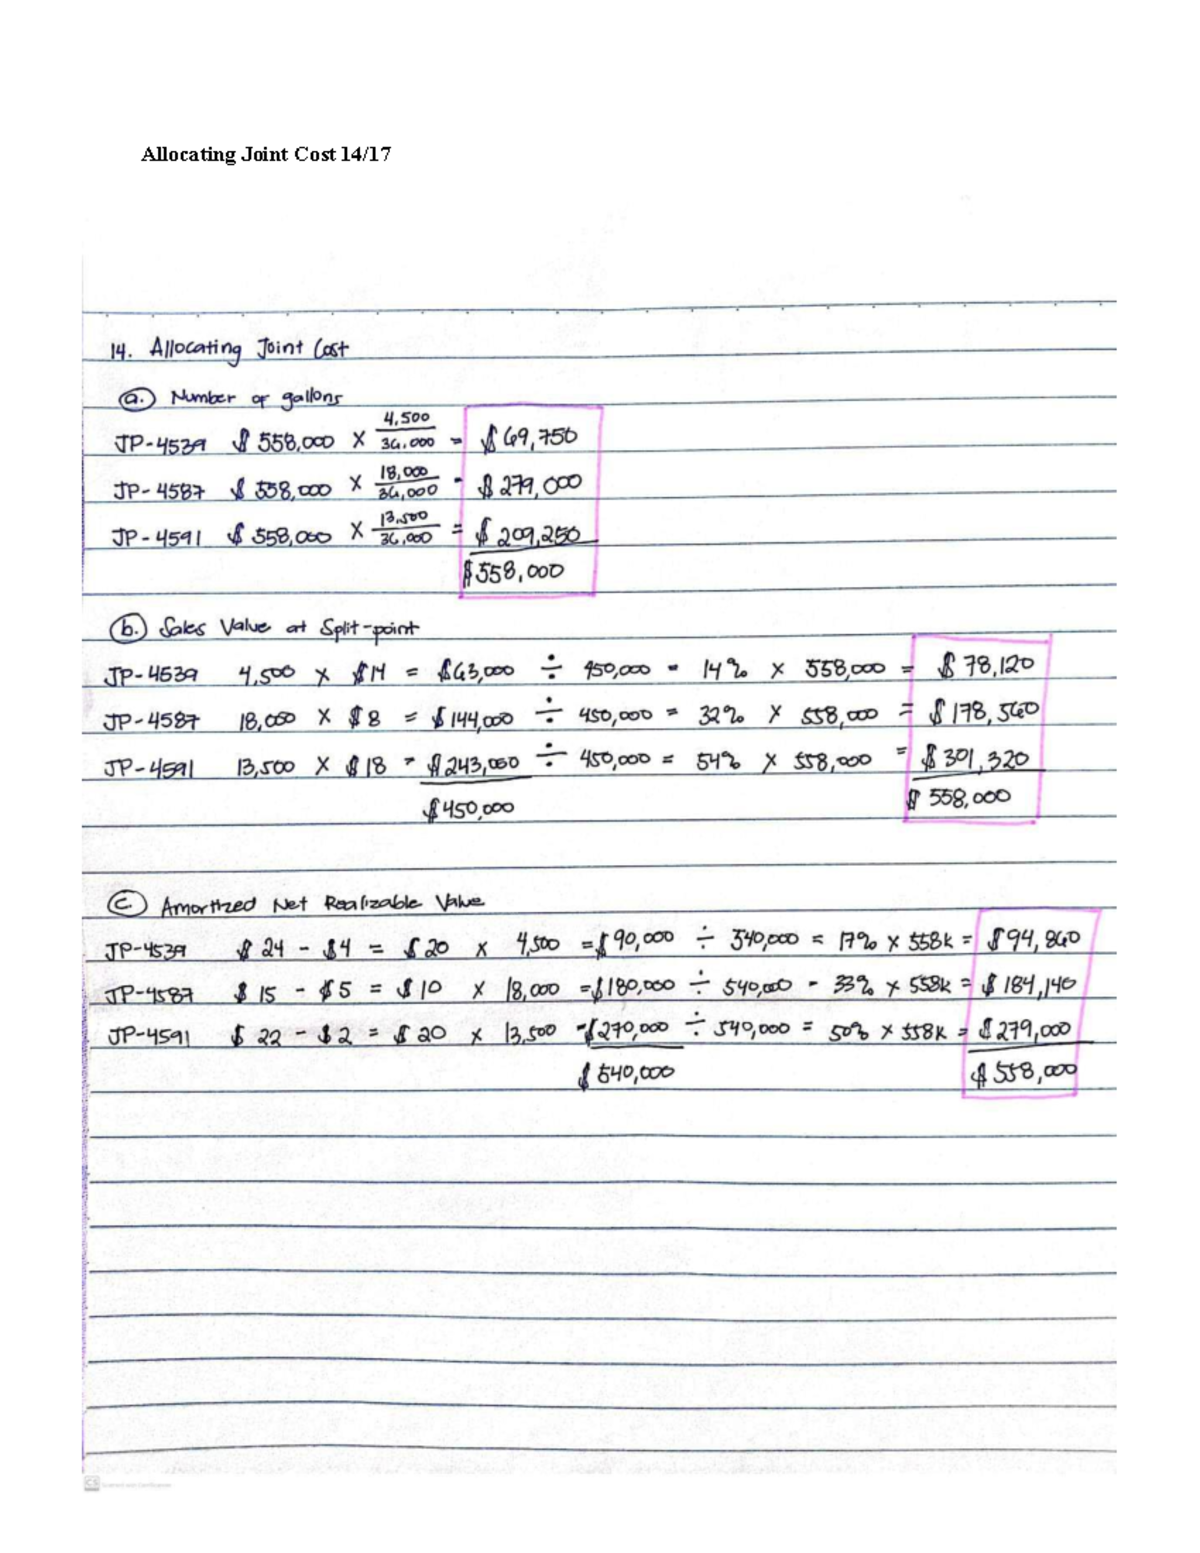 Allocating Joint Cost 14/17
14. Allocating Joint Cost
a. Number of gallons
JP-4539 $ 558,000 × 4,500/36,000 = $ 69,750
JP-4587 $ 558,000 × 18,000/36,000 = $ 279,000
JP-4591 $ 558,000 × 13,500/36,000 = $ 209,250
$558,000
b. Sales Value at Split-point
JP-4539 4,500 × $14 = $63,000 ÷ 450,000 = 14% × 558,000 = $ 78,120
JP-4587 18,000 × $8 = $144,000 ÷ 450,000 = 32% × 558,000 = $178,560
JP-4591 13,500 × $18 = $243,000 ÷ 450,000 = 54% × 558,000 = $301,320
$450,000 $ 558,000
c. Amortized Net Realizable Value
JP-4539 $ 24 - $4 = $ 20 × 4,500 = $90,000 ÷ 540,000 = 17% × 558k = $94,860
JP-4587 $ 15 - $5 = $ 10 × 18,000 = $180,000 ÷ 540,000 = 33% × 558k = $ 184,140
JP-4591 $ 22 - $2 = $ 20 × 13,500 = $270,000 ÷ 540,000 = 50% × 558k = $279,000
$ 540,000 $558,000
CS Scanned with CamScanner